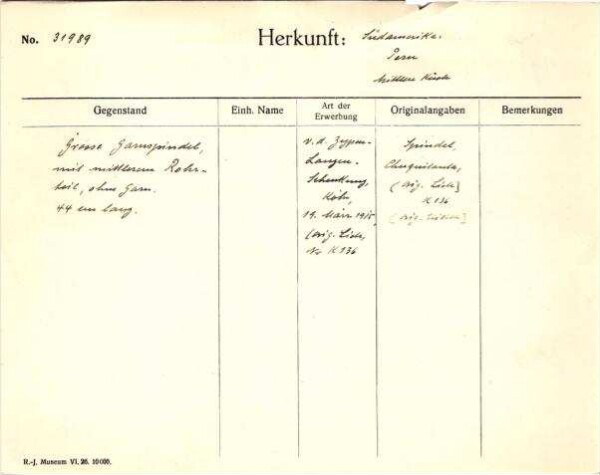 No. 31989
Herkunft: Südamerika.
Peru
Mittlere Küste
Gegenstand
Einh. Name
Art der
Erwerbung
Originalangaben
Bemerkungen
Grosse Garnspindel,
mit mittlerem Rohr-
teil, ohne Garn.
44 cm lang.
v. d. Zypen-
Langen-
Schenkung,
Köln,
19. März 1915,
(orig. Liste,
No K 136
Spindel,
Chuquitanta,
(orig. Liste)
K 136
(orig.
R.-J. Museum VI. 26. 10000.